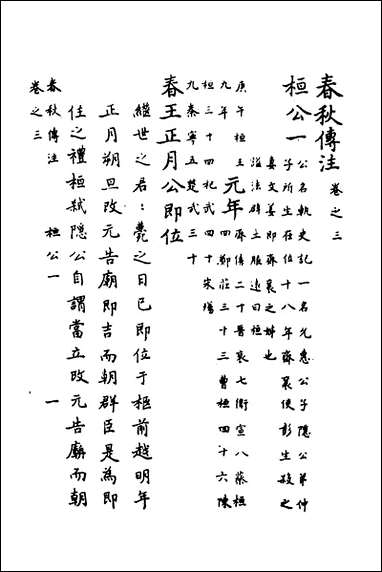 春秋傳注 卷之三
桓公一
公名軌史記一名允惠公子隱公弟仲
子所生在位十八年齊襄使彭生殺之
妻文姜即齊襄之妹也
謚法辟土服遠曰桓
庚午桓王
九年
元年
齊僖二十晉哀七衛宣八蔡桓
四鄭莊三十三曹桓四十六陳
桓三十四杞武四十宋殤
九秦寧五楚武三十
春王正月公即位
繼世之君：薨之日已即位于柩前越明年
正月朔旦改元告廟即吉而朝群臣是為即
位之禮桓弒隱公自謂當立改元告廟而朝
春秋傳注 桓公一 一
卷之三